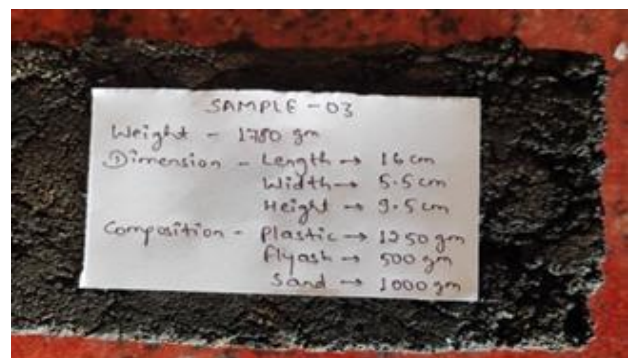 SAMPLE - 03
Weight - 1780 gm
Dimension - Length → 16 cm
Width → 5.5 cm
Height → 9.5 cm
Composition - Plastic → 1250 gm
Flyash → 500 gm
Sand → 1000 gm